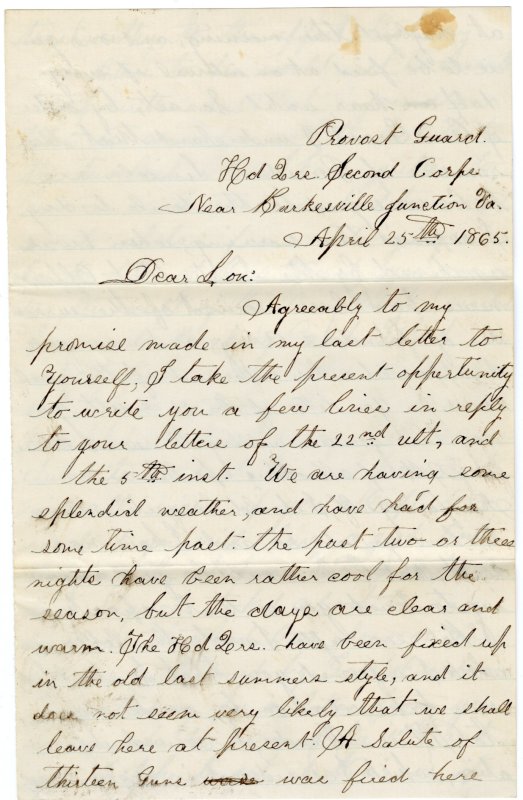 Provost Guard.
Hd Qrs. Second Corps
Near Burkesville Junction Va.
April 25th 1865.
Dear Lon:
Agreeably to my
promise made in my last letter to
Yourself, I take the present opportunity
to write you a few lines in reply
to your letters of the 22nd ult, and
the 5th inst. We are having some
splendid weather, and have had for
some time past. the past two or three
nights have been rather cool for the
season, but the days are clear and
warm. The Hd Qrs. have been fixed up
in the old last summers style, and it
does not seem very likely that we shall
leave here at present. A Salute of
thirteen Guns was fired here